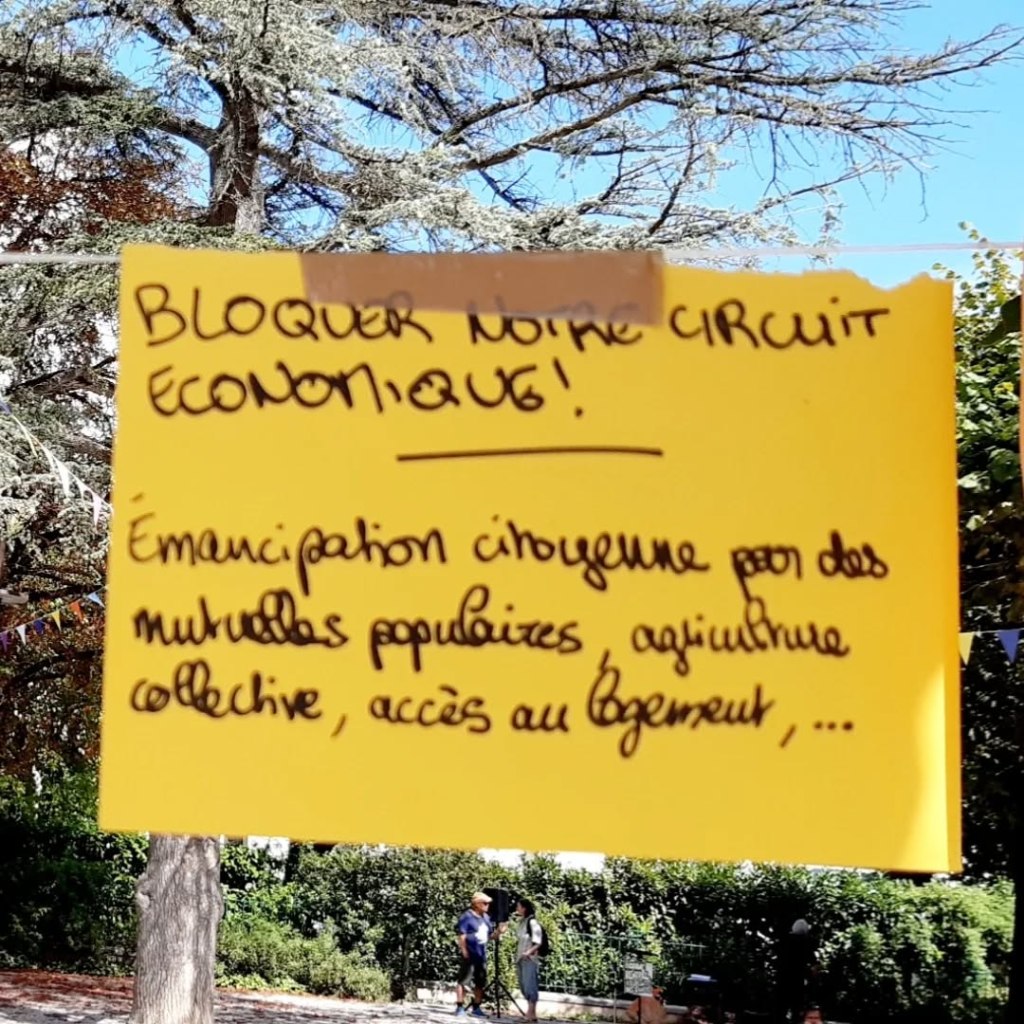 BLOQUER NOTRE CIRCUIT
ECONOMIQUE!
Émancipation citoyenne pour des
mutuelles populaires, agriculture
collective, accès au logement, ...